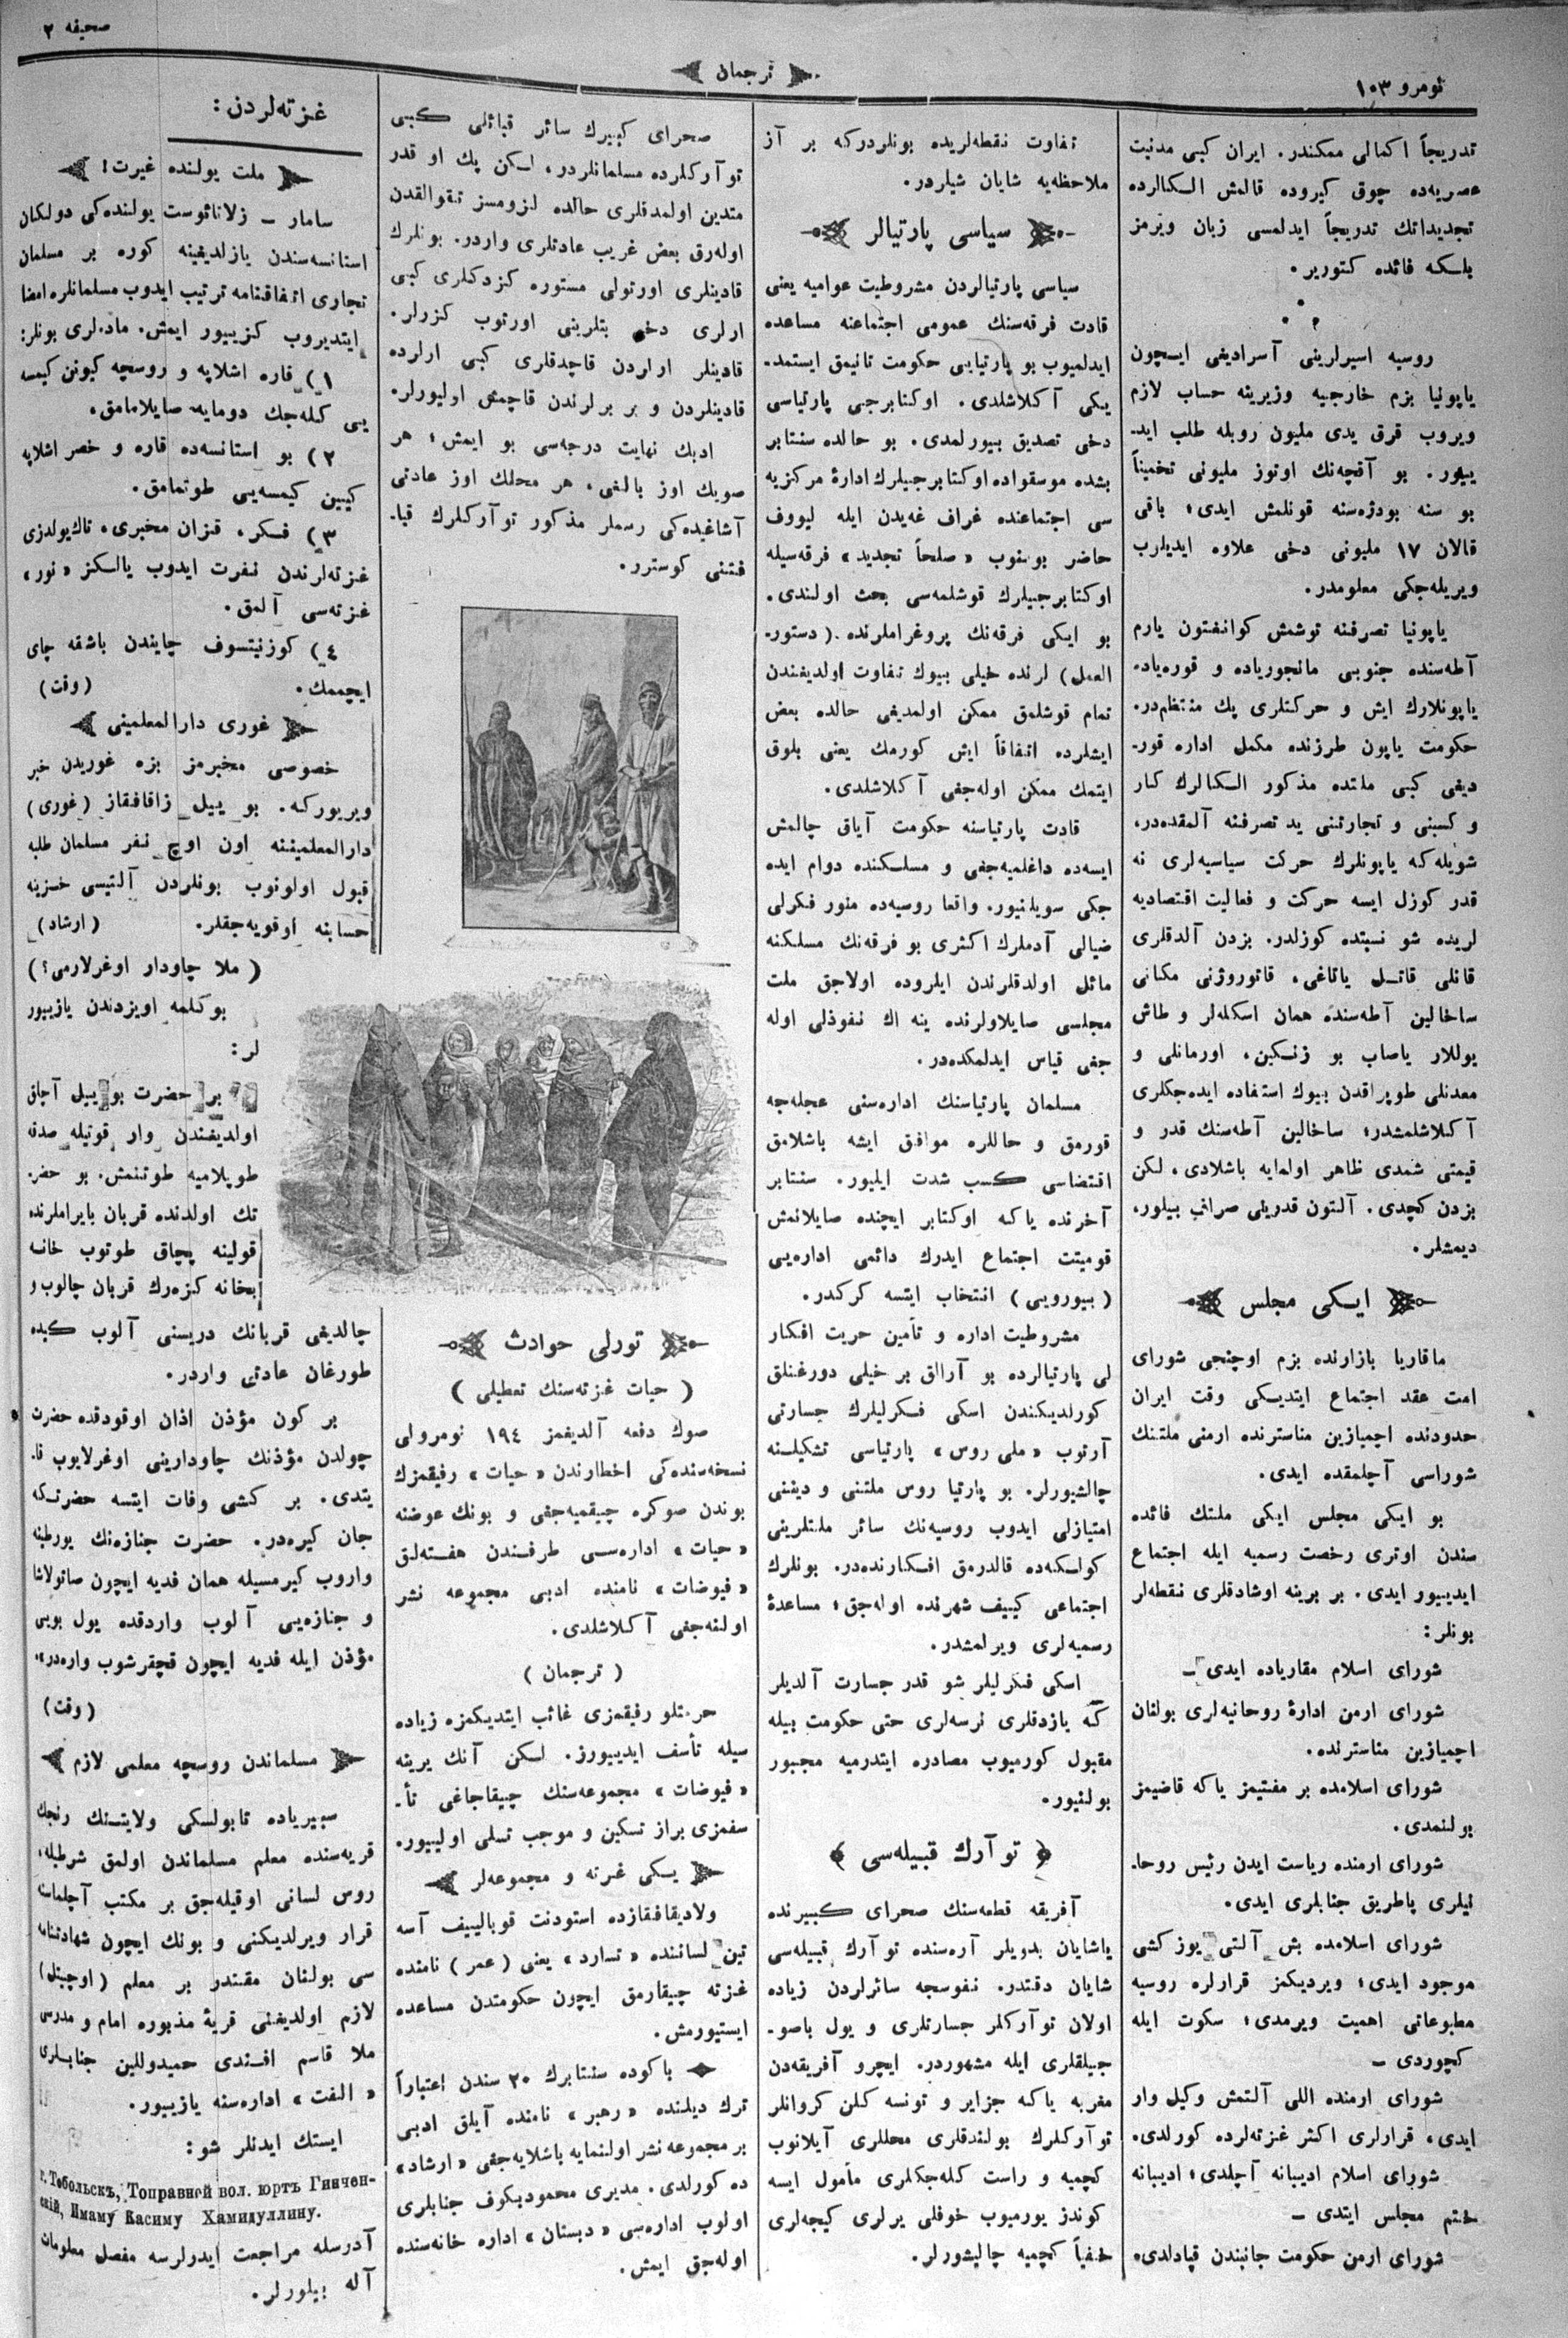 نومرو ١٠٣
ترجمان
صحیفه ٢
تدریجاً اکمالی ممکندر. ایران کبی مدنیت
عصریه‌ده چوق کیروده قالمش الکالرده
تجدیداتك تدریجاً ایدلمسی زیان ویرمز
بلکه فائده کتوریر.
روسیه اسیرلرینی آسرادیغی ایچون
یاپونیا بزم خارجیه وزیرینه حساب لازم
ویروب قرق یدی ملیون روبله طلب اید-
ییور. بو آقچه‌نك اوتوز ملیونی تخمیناً
بو سنه بودژه‌سنه قونلمش ایدی؛ باقی
قالان ١٧ ملیونی دخی علاوه ایدیلرب
ویریله‌جکی معلومدر.
یاپونیا تصرفنه توشمش کوانفتون یارم
آطه‌سنده جنوبی مانجوریاده و قوره‌یاده
یاپونلارك ایش و حرکتلری پك منتظم‌در.
حکومت یاپون طرزنده مکمل اداره قور-
دیغی کبی ملتده مذکور الکالرك کار
و کسبنی و تجارتنی ید تصرفنه آلمقده‌در.
شویله‌که یاپونلرك حرکت سیاسیه‌لری نه
قدر کوزل ایسه حرکت و فعالیت اقتصادیه
لریده شو نسبتده کوزلدر. بزدن آلدقلری
قانلی قاتل یاتاغی، قاتوروژنی مکانی
ساخالین آطه‌سنده همان اسکله‌لر و طاش
یوللار یاصاب بو زنکین، اورمانلی و
معدنلی طوپراقدن بیوك استفاده ایده‌جکلری
آکلاشلمشدر؛ ساخالین آطه‌سنك قدر و
قیمتی شمدی ظاهر اولمایه باشلادی. لکن
بزدن کچدی. آلتون قدرینی صراف بیلور،
دیمشلر.
ایکی مجلس
ماقاریا بازارنده بزم اوچنجی شورای
امت عقد اجتماع ایتدیکی وقت ایران
حدودنده اچمیازین مناسترنده ارمنی ملتنك
شوراسی آچلمقده ایدی.
بو ایکی مجلس ایکی ملتك فائده
سندن اوتری رخصت رسمیه ایله اجتماع
ایدییور ایدی. بر برینه اوشادقلری نقطه‌لر
بونلر:
شورای اسلام مقاریاده ایدی –
شورای ارمن ادارهٔ روحانیه‌لری بولنان
اچمیازین مناسترنده.
شورای اسلامده بر مفتیمز یاکه قاضیمز
بولنمدی.
شورای ارمنده ریاست ایدن رئیس روحا-
نیلری پاطریق جنابلری ایدی.
شورای اسلامده بش آلتی یوز کشی
موجود ایدی؛ ویردیکمز قرارلره روسیه
مطبوعاتی اهمیت ویرمدی؛ سکوت ایله
کچوردی –
شورای ارمنده اللی آلتمش وکیل وار
ایدی، قرارلری اکثر غزته‌لرده کورلدی.
شورای اسلام ادیبانه آچلدی؛ ادیبانه
ختم مجلس ایتدی –
شورای ارمن حکومت جانبندن قپادلدی.
تفاوت نقطه‌لریده بونلردرکه بر آز
ملاحظه‌یه شایان شیلردر.
سیاسی پارتیالر
سیاسی پارتیالردن مشروطیت عوامیه یعنی
قادت فرقه‌سنك عمومی اجتماعنه مساعده
ایدلمیوب بو پارتیایی حکومت تانیمق ایستمد-
یکی آکلاشلدی. اوکتابرجی پارتیاسی
دخی تصدیق بیورلمدی. بو حالده سنتابر
بشده موسقواده اوکتابرجیلرك ادارهٔ مرکزیه
سی اجتماعنده غراف غه‌یدن ایله لیووف
حاضر بولنوب «صلحاً تجدید» فرقه‌سیله
اوکتابرجیلرك قوشلمه‌سی بحث اولندی.
بو ایکی فرقه‌نك پروغراملرنده (دستور-
العمل) لرنده خیلی بیوك تفاوت اولدیغندن
تمام قوشلمق ممکن اولمدیغی حالده بعض
ایشلرده اتفاقاً ایش کورمك یعنی بلوق
ایتمك ممکن اوله‌جغی آکلاشلدی.
قادت پارتیاسنه حکومت آیاق چالمش
ایسه‌ده داغلمیه‌جغی و مسلکنده دوام ایده
جکی سویلنیور. واقعا روسیه‌ده منور فکرلی
ضیالی آدملرك اکثری بو فرقه‌نك مسلکنه
مائل اولدقلرندن ایلروده اولاجق ملت
مجلسی صایلاولرنده ینه اك نفوذلی اوله
جغی قیاس ایدلمکده‌در.
مسلمان پارتیاسنك اداره‌سنی عجله‌جه
قورمق و حاللره موافق ایشه باشلامق
اقتضاسی کسب شدت ایلیور. سنتابر
آخرنده یاکه اوکتابر ایچنده صایلانمش
قومیتت اجتماع ایدرك دائمی اداره‌یی
(بیورویی) انتخاب ایتسه کرکدر.
مشروطیت اداره و تأمین حریت افکار
لی پارتیالرده بو آرالق بر خیلی دورغنلق
کورلدیکندن اسکی فکرلیلرك جسارتی
آرتوب «ملی روس» پارتیاسی تشکیلنه
چالشیورلر. بو پارتیا روس ملتنی و دیننی
امتیازلی ایدوب روسیه‌نك سائر ملتلرینی
کولکه‌ده قالدرمق افکارنده‌در. بونلرك
اجتماعی کییف شهرنده اوله‌جق؛ مساعدهٔ
رسمیه‌لری ویرلمشدر.
اسکی فکرلیلر شو قدر جسارت آلدیلر
که یازدقلری نرسه‌لری حتی حکومت بیله
مقبول کورمیوب مصادره ایتدرمیه مجبور
بولنیور.
توآرك قبیله‌سی
آفریقه قطعه‌سنك صحرای کبیرنده
یاشایان بدویلر آره‌سنده توآرك قبیله‌سی
شایان دقتدر. نفوسجه سائرلردن زیاده
اولان توآرکلر جسارتلری و یول باصو-
جیلقلری ایله مشهوردر. ایچرو آفریقه‌دن
مغربه یاکه جزایر و تونسه کلن کروانلر
توآرکلرك بولندقلری محللری آیلانوب
کچمیه و راست کله‌جکلری مأمول ایسه
کوندز یورمیوب خوفلی یرلری کیجه‌لری
خفیاً کچمیه چالیشورلر.
صحرای کبیرك سائر قبائلی کبی
توآرکلرده مسلمانلردر، لکن پك او قدر
متدین اولمدقلری حالده لزومسز تقوالقدن
اوله‌رق بعض غریب عادتلری واردر. بونلرك
قادینلری اورتولی مستوره کزدکلری کبی
ارلری دخی بتلرینی اورتوب کزرلر.
قادینلر ارلردن قاچدقلری کبی ارلرده
قادینلردن و بر برلرندن قاچمش اولیورلر.
ادبك نهایت درجه‌سی بو ایمش؛ هر
صویك اوز بالغی، هر محلك اوز عادتی
آشاغیده‌کی رسملر مذکور توآرکلرك قیا-
فتنی کوسترر.
تورلی حوادث
(حیات غزته‌سنك تعطیلی)
صوك دفعه آلدیغمز ١٩٤ نومرولی
نسخه‌سنده‌کی اخطارندن «حیات» رفیقمزك
بوندن صوکره چیقمیه‌جغی و بونك عوضنه
«حیات» اداره‌سی طرفندن هفته‌لق
«فیوضات» نامنده ادبی مجموعه نشر
اولنه‌جغی آکلاشلدی.
(ترجمان)
حرمتلو رفیقمزی غائب ایتدیکمزه زیاده
سیله تأسف ایدییورز. لکن آنك یرینه
«فیوضات» مجموعه‌سنك چیقاجاغی تأ-
سفمزی براز تسکین و موجب تسلی اولییور.
یکی غزته و مجموعه‌لر
ولادیقافقازده استودنت قوبالییف آسه
تین لساننده «تسارد» یعنی (عمر) نامنده
غزته چیقارمق ایچون حکومتدن مساعده
ایستیورمش.
باکوده سنتابرك ٢٠ سندن اعتباراً
ترك دیلنده «رهبر» نامنده آیلق ادبی
بر مجموعه نشر اولنمایه باشلایه‌جغی «ارشاد»
ده کورلدی. مدیری محمودبکوف جنابلری
اولوب اداره‌سی «دبستان» اداره خانه‌سنده
اوله‌جق ایمش.
غزته‌لردن:
ملت یولنده غیرت!
سامار – زلاتائوست یولنده‌کی دولکان
استانسه‌سندن یازلدیغینه کوره بر مسلمان
تجاری اتفاقنامه ترتیب ایدوب مسلمانلره امضا
ایتدیروب کزییور ایمش. ماده‌لری بونلر:
١) قاره اشلاپه و روسچه کیونن کیمسه
یی کله‌جك دومایه صایلامامق.
٢) بو استانسه‌ده قاره و خصر اشلاپه
کیین کیمسه‌یی طوتمامق.
٣) فکر، قزان مخبری، تاك یولدزی
غزته‌لرندن نفرت ایدوب یالکز «نور»
غزته‌سی آلمق.
٤) کوزنیتسوف چایندن باشقه چای
ایچممك. (وقت)
غوری دارالمعلمینی
خصوصی مخبرمز بزه غوریدن خبر
ویریورکه. بو ییل زاقافقاز (غوری)
دارالمعلمیننه اون اوچ نفر مسلمان طلبه
قبول اولونوب بونلردن آلتیسی خزینه
حسابنه اوقویه‌جقلر. (ارشاد)
(ملا چاودار اوغرلارمی؟)
بوکلمه اویزدندن یازییور
لر:
بر حضرت بو ییل آچلق
اولدیغندن وار قوتیله صدقه
طوپلامیه طوتنمش. بو حضر-
تك اولدنده قربان بایراملرنده
قولینه پچاق طوتوب خانه
بخانه کزه‌رك قربان چالوب و
چالدیغی قربانك دریسنی آلوب کیده
طورغان عادتی واردر.
بر کون مؤذن اذان اوقودقده حضرت
چولدن مؤذنك چاودارینی اوغرلایوب قا-
یتدی. بر کشی وفات ایتسه حضرتکه
جان کیره‌در. حضرت جنازه‌نك یورطینه
واروب کیرمسیله همان فدیه ایچون صاتولاشا
و جنازه‌یی آلوب واردقده یول بویی
مؤذن ایله فدیه ایچون قچقرشوب واره‌در».
(وقت)
مسلماندن روسچه معلمی لازم
سیبریاده تابولسکی ولایتنك
قریه‌سنده معلم مسلماندن اولمق شرطیله،
روس لسانی اوقیله‌جق بر مکتب آچلماسنه
قرار ویرلدیکنی و بونك ایچون شهادتنامه
سی بولنان مقتدر بر معلم (اوچیتل)
لازم اولدیغنی قریهٔ مذبوره امام و مدرسی
ملا قاسم افندی حمیدوللین جنابلری
«الفت» اداره‌سنه یازییور.
ایستك ایدنلر شو:
г. Тобольскъ, Топравней вол. юртъ Гинчен-
скій, Имаму Касиму Хамидуллину.
آدرسله مراجعت ایدرلرسه مفصل معلومات
آله بیلورلر.